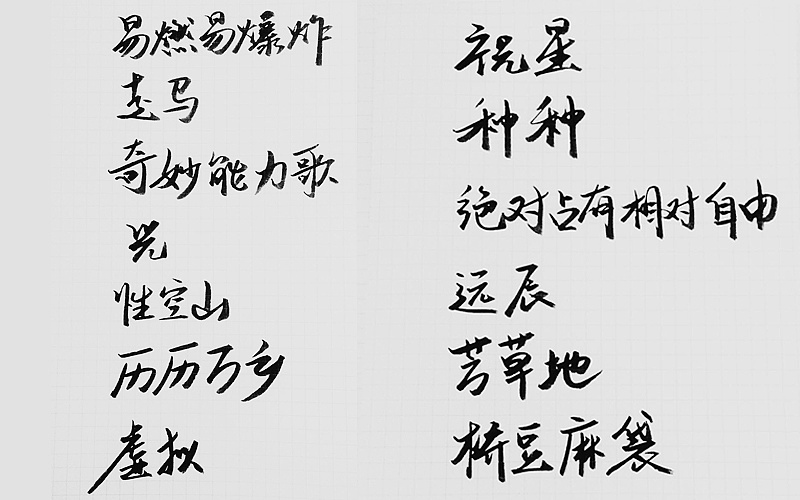 易燃易爆炸
走马
奇妙能力歌
光
性空山
历历万乡
虚拟
祝星
种种
绝对占有相对自由
远辰
芳草地
桥豆麻袋